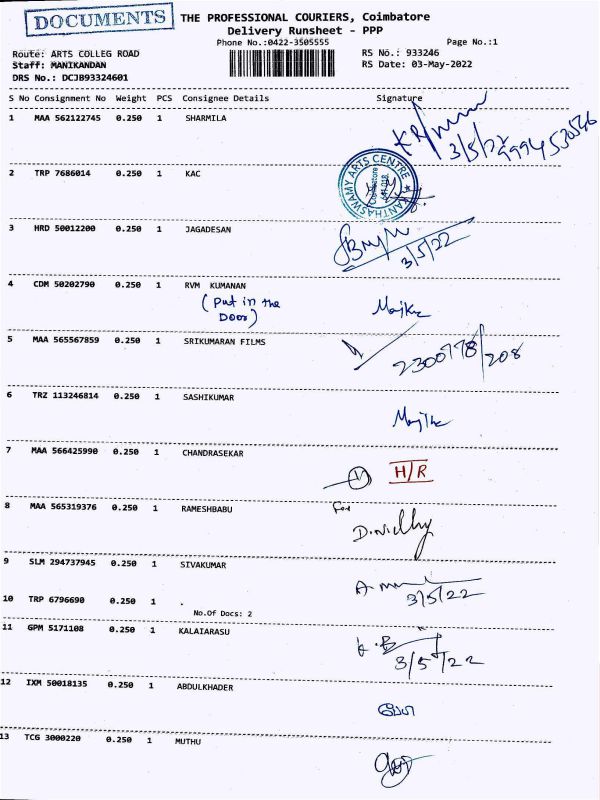 DOCUMENTS
THE PROFESSIONAL COURIERS, Coimbatore
Delivery Runsheet - PPP
Phone No.:0422-3505555
Page No.:1
Route: ARTS COLLEG ROAD
RS No.: 933246
Staff: MANIKANDAN
RS Date: 03-May-2022
DRS No.: DCJB93324601
S No Consignment No Weight PCS Consignee Details Signature
1 MAA 562122745 0.250 1 SHARMILA
3/5/22
2 TRP 7686014 0.250 1 KAC
ARTS CENTRE
3 HRD 50012200 0.250 1 JAGADESAN
3/5/22
4 CDM 50202790 0.250 1 RVM KUMANAN
(Put in the
Door)
5 MAA 565567859 0.250 1 SRIKUMARAN FILMS
2300778/208
6 TRZ 113246814 0.250 1 SASHIKUMAR
7 MAA 566425990 0.250 1 CHANDRASEKAR
H/R
8 MAA 565319376 0.250 1 RAMESHBABU
For
9 SLM 294737945 0.250 1 SIVAKUMAR
3/5/22
10 TRP 6796690 0.250 1 .
No.Of Docs: 2
11 GPM 5171108 0.250 1 KALAIARASU
3/5/22
12 IXM 50018135 0.250 1 ABDULKHADER
13 TCG 3000220 0.250 1 MUTHU